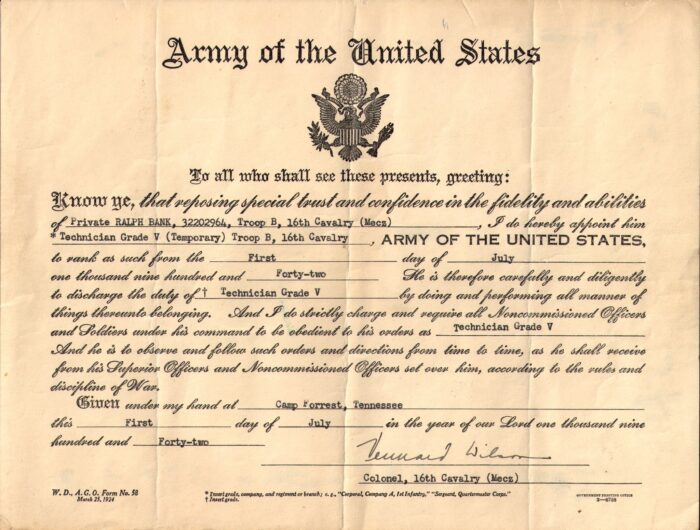 Army of the United States
To all who shall see these presents, greeting:
Know ye, that reposing special trust and confidence in the fidelity and abilities
of Private RALPH BANK, 32202964, Troop B, 16th Cavalry (Mecz), I do hereby appoint him
* Technician Grade V (Temporary) Troop B, 16th Cavalry, ARMY OF THE UNITED STATES,
to rank as such from the First day of July
one thousand nine hundred and Forty-two He is therefore carefully and diligently
to discharge the duty of † Technician Grade V by doing and performing all manner of
things thereunto belonging. And I do strictly charge and require all Noncommissioned Officers
and Soldiers under his command to be obedient to his orders as Technician Grade V
And he is to observe and follow such orders and directions from time to time, as he shall receive
from his Superior Officers and Noncommissioned Officers set over him, according to the rules and
discipline of War.
Given under my hand at Camp Forrest, Tennessee
this First day of July in the year of our Lord one thousand nine
hundred and Forty-two
Vennard Wilson
Colonel, 16th Cavalry (Mecz)
W. D., A. G. O. Form No. 58
March 25, 1924
* Insert grade, company, and regiment or branch; e. g., "Corporal, Company A, 1st Infantry," "Sergeant, Quartermaster Corps."
† Insert grade.
GOVERNMENT PRINTING OFFICE